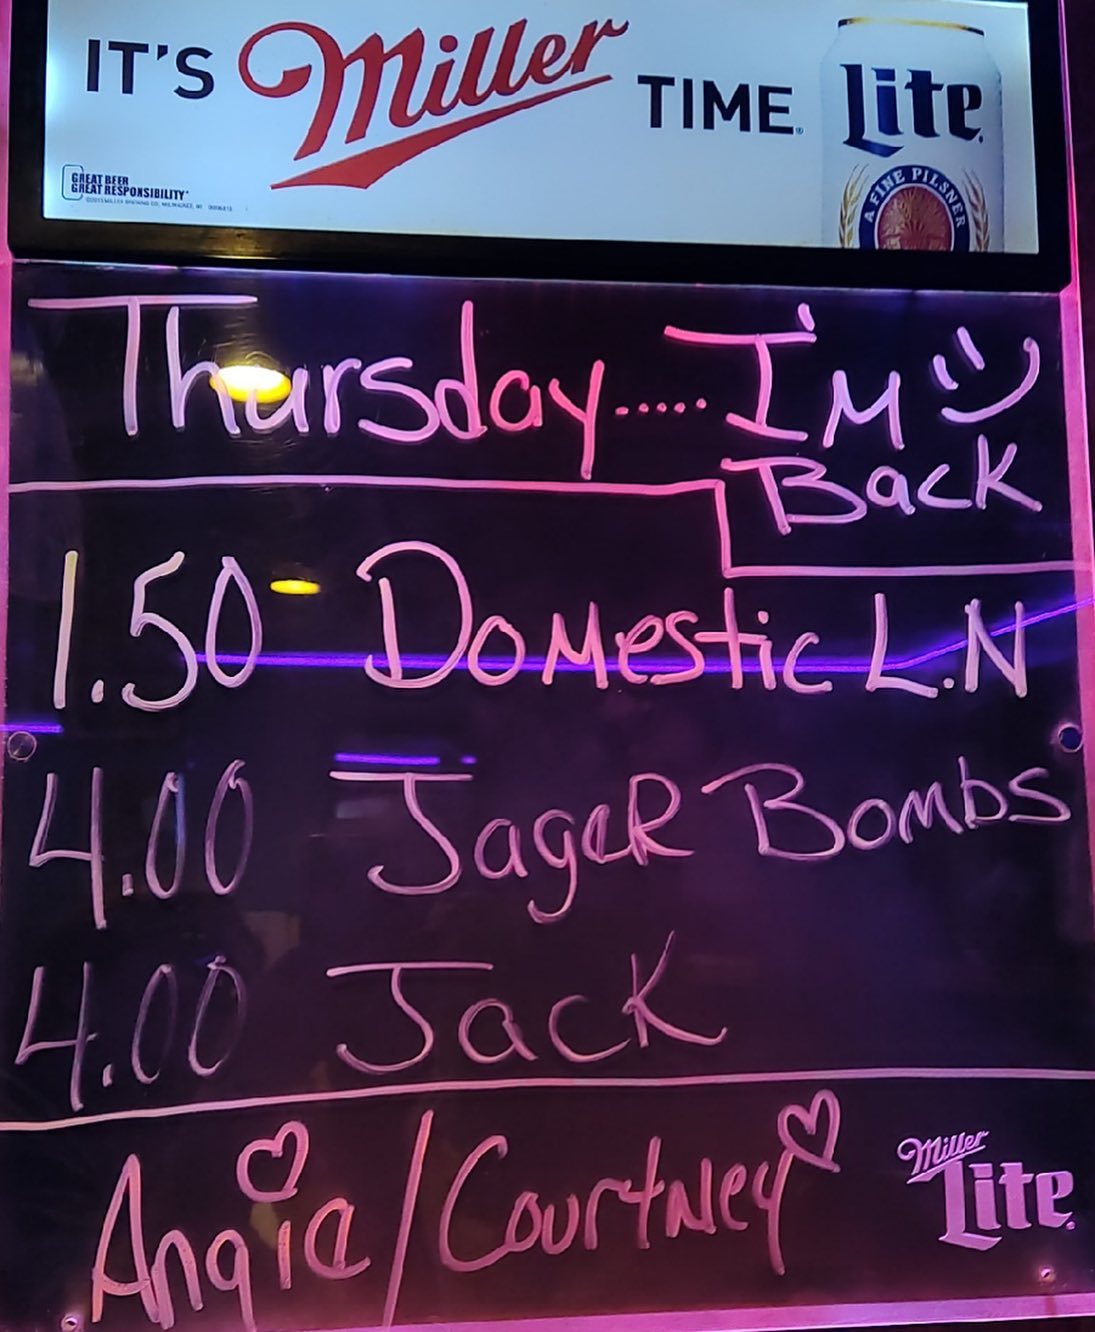 IT'S Miller TIME®
Lite
A FINE PILSNER
GREAT BEER
GREAT RESPONSIBILITY®
Thursday..... I'm
Back
1.50 Domestic L.N
4.00 Jager Bombs
4.00 Jack
Angie/Courtney
Miller
Lite